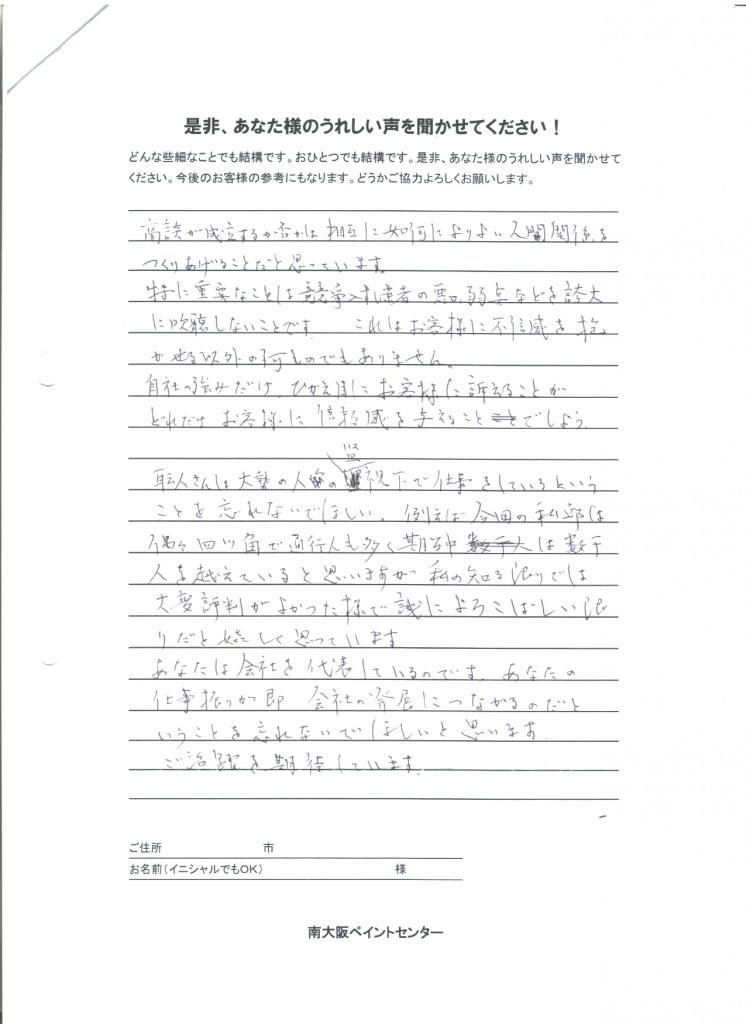 是非、あなた様のうれしい声を聞かせてください！
どんな些細なことでも結構です。おひとつでも結構です。是非、あなた様のうれしい声を聞かせて
ください。今後のお客様の参考にもなります。どうかご協力よろしくお願いします。
商談が成立するか否かは相互に如何によりよい人間関係を
つくりあげることだと思っています。
特に重要なことは競争入札業者の悪口弱点などを誇大
に吹聴しないことです これはお客様に不信感を抱
かせる以外の何ものでもありません。
自社の強みだけ、ひかえ目にお客様に訴えることが
どれだけお客様に信頼感を与えることでしょう。
職人さんは大勢の人の監視下で仕事をしているという
ことを忘れないでほしい。例えば今回の私邸は
偶々四ツ角で通行人も多く期間中は数千
人を越えていると思いますが私の知る限りでは
大変評判がよかった様で誠によろこばしい限
りだと嬉しく思っています
あなたは会社を代表しているのです。あなたの
仕事振りが即 会社の発展につながるのだと
いうことを忘れないでほしいと思います。
ご活躍を期待しています。
ご住所 市
お名前（イニシャルでもOK） 様
南大阪ペイントセンター